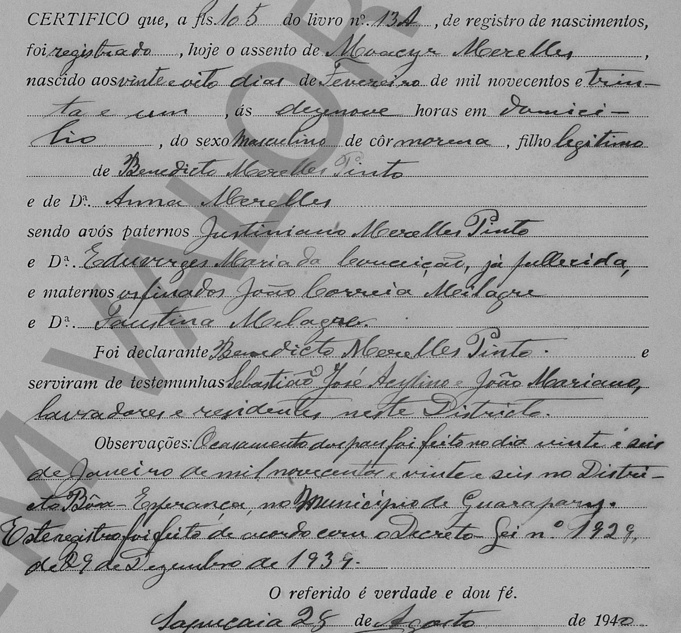 CERTIFICO que, a fls. 105 do livro nº. 13A, de registro de nascimentos,
foi registrado, hoje o assento de Moacyr Merelles,
nascido aos vinte e oito dias de Fevereiro de mil novecentos e trin-
ta e um, ás dezenove horas em domici-
lio, do sexo masculino de côr morena, filho legitimo
de Benedicto Merelles Pinto
e de Dª. Anna Merelles
sendo avós paternos Justiniano Merelles Pinto
e Dª. Eduvirges Maria da Conceição, já fallecida,
e maternos os finados João Correia Milagre
e Dª. Faustina Milagre.
Foi declarante Benedicto Merelles Pinto. e
serviram de testemunhas Sebastião José e João Mariano,
lavradores e residentes neste Districto.
Observações: O casamento dos pais foi feito no dia vinte e seis
de Janeiro de mil novecentos e vinte e seis no Distri-
cto Bôa-Esperança, no Município de Guarapary.
Este registro foi feito de acordo com o Decreto-Lei nº 1929,
de 29 de Dezembro de 1939.
O referido é verdade e dou fé.
Sapucaia 28 de Agosto de 1940
EM VALOR